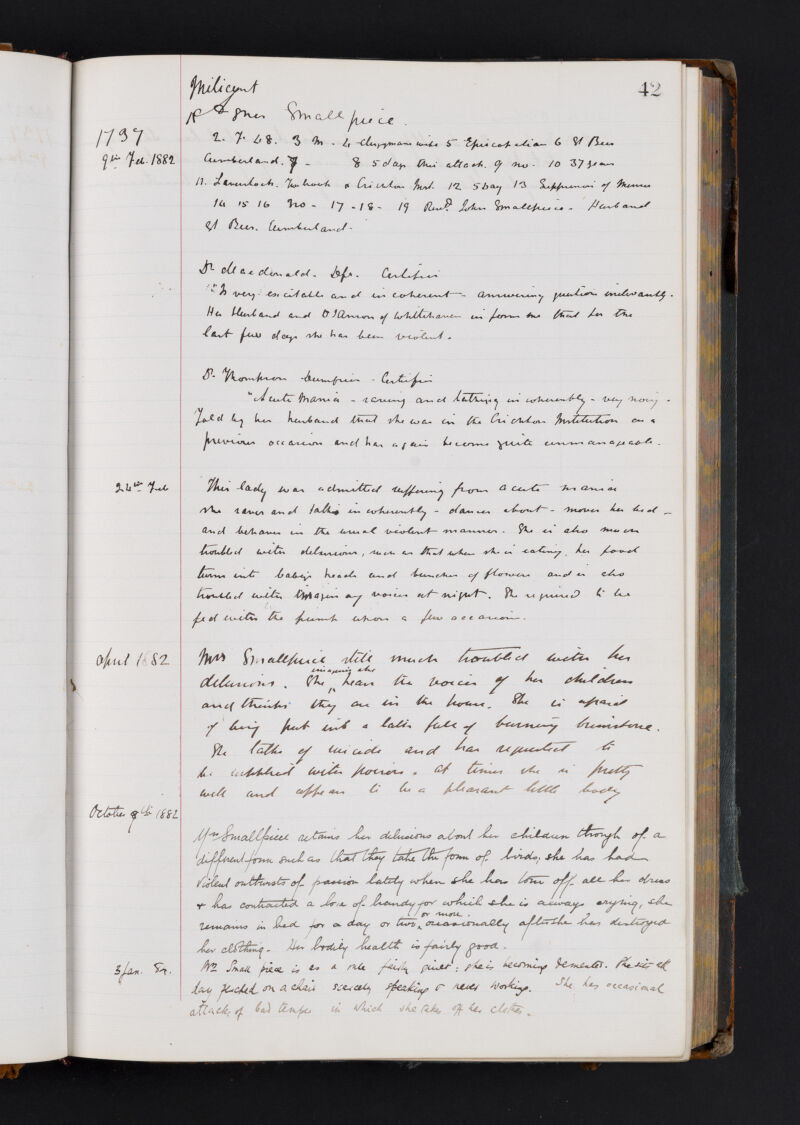 42
Milicent
Agnes Smallpiece.
1737
9th Feb. 1882
2. F. 48. 3 M. 4 Clergymans wife 5 Episcopalian 6 St Bees
Cumberland. 7 - 8 5 days this attack. 9 no. 10 37 years
11. Crichton Inst. 12 5 Day 13 Suppression of Menses
14 15 16 No - 17 - 18 - 19 Revd. John Smallpiece - Husband
St Bees. Cumberland.
Dr Macdonald. Dfs. Certifies
"Is very excitable and incoherent - answering question irrelevantly.
Her Husband and Dr of Whitehaven inform me that for the
last few days she has been violent.
Dr. Thompson Dumfries - Certifies
"Acute Mania - raving and talking incoherently - very noisy.
Told by her husband that she was in the Crichton Institution on a
previous occasion and has again become quite unmanageable.
24th Feb
This lady was admitted suffering from acute mania
she raves and talks incoherently - dances about - moves her bed -
and behaves in the usual violent manner. She is also much
troubled with delusions, such as that when she is eating, her food
turns into babies heads and bunches of flowers and is also
troubled with imaginary voices at night. She required to be
fed with the pump upon a few occasions.
April 1882
Mrs Smallpiece still much troubled with her
delusions. She imagines she hears the voices of her children
and thinks they are in the house. She is afraid
of being put into a lake full of burning brimstone.
She talks of suicide and has requested to
be supplied with poison. At times she is pretty
well and appears to be a pleasant little body
October 9th 1882
Mrs Smallpiece retains her delusions about her children though of a
different form such as that they take the form of birds; she has had
violent outbursts of passion lately when she has torn off all her dress
+ has contracted a love of brandy for which she is always crying, she
remains in bed for a day or two or more occasionally after she has destroyed
her clothing. Her bodily health is fairly good.
3 Jan. 83.
Mrs Smallpiece is as a rule fairly quiet: she is becoming demented. She sits all
day perched on a chair scarcely speaking & never working. She has occasional
attacks of bad temper in which she takes off her clothes.